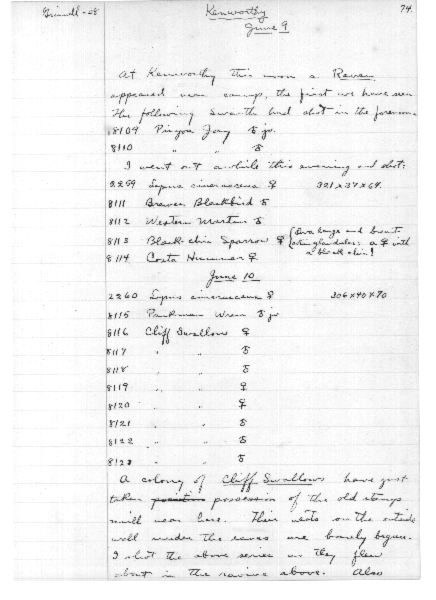 Grinnell - 08
Kenworthy
74.
June 9
At Kenworthy this morn a Raven
appeared near camp, the first we have seen
The following Swarth had shot in the forenoon
8109 Pinyon Jay ♂ jv.
8110 " " ♂
I went out awhile this evening and shot:
2259 Lepus cinerascens ♀ 321 x 37 x 69.
8111 Brewer Blackbird ♂
8112 Western Martin ♂
8113 Black-chin Sparrow ♀ { Ova large and breasts
glandular: a ♀ with
a black chin!
8114 Costa Hummer ♀
June 10
2260 Lepus cinerascens ♀ 306 x 40 x 70
8115 Parkman Wren ♂ jv
8116 Cliff Swallow ♀
8117 " " ♂
8118 " " ♂
8119 " " ♀
8120 " " ♀
8121 " " ♂
8122 " " ♂
8123 " " ♂
A colony of Cliff Swallows have just
taken possession of the old stamp
mill near here. Their nests on the outside
wall under the eaves are barely begun.
I shot the above series as they flew
about in the ravine above. Also